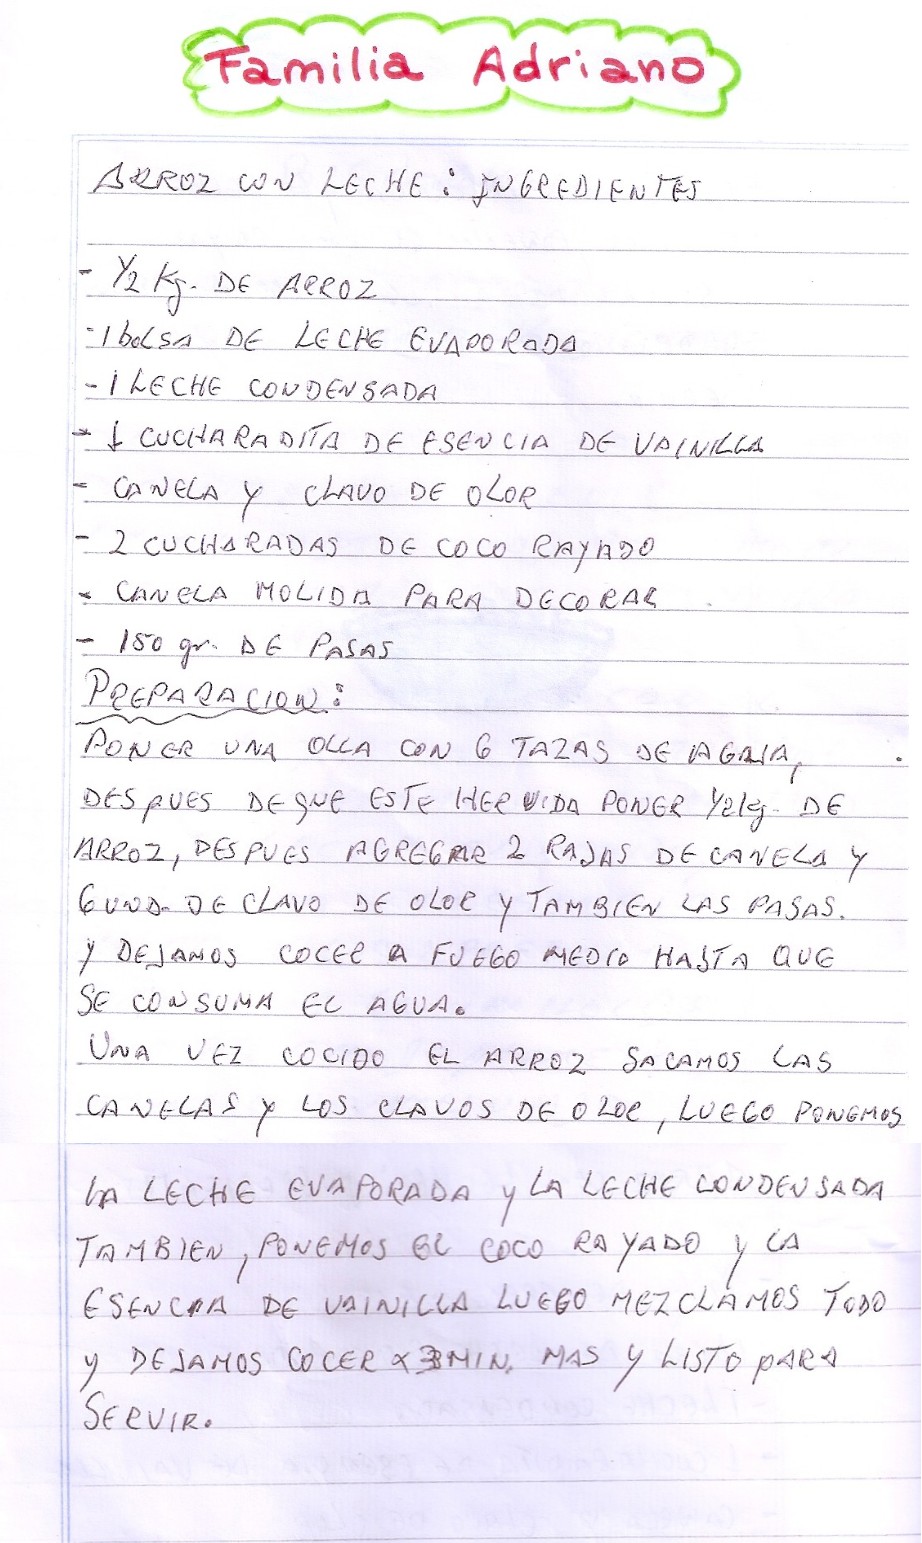 Familia Adriano
ARROZ CON LECHE: INGREDIENTES
- 1/2 Kg. DE ARROZ
- 1 bolSA DE LECHE EVAPORADA
- 1 LECHE CONDENSADA
- 1 CUCHARADITA DE ESENCIA DE VAINILLA
- CANELA Y CLAVO DE OLOR
- 2 CUCHARADAS DE COCO RAYADO
- CANELA MOLIDA PARA DECORAR
- 150 gr. DE PASAS
PREPARACION:
PONER UNA OLLA CON 6 TAZAS DE AGUA,
DESPUES DE QUE ESTE HERVIDA PONER 1/2 kg. DE
ARROZ, DESPUES AGREGAR 2 RAJAS DE CANELA Y
6 UND. DE CLAVO DE OLOR Y TAMBIEN LAS PASAS.
Y DEJAMOS COCER A FUEGO MEDIO HASTA QUE
SE CONSUMA EL AGUA.
UNA VEZ COCIDO EL ARROZ SACAMOS LAS
CANELAS Y LOS CLAVOS DE OLOR, LUEGO PONEMOS
LA LECHE EVAPORADA Y LA LECHE CONDENSADA
TAMBIEN, PONEMOS EL COCO RAYADO Y LA
ESENCIA DE VAINILLA LUEGO MEZCLAMOS TODO
Y DEJAMOS COCER x 3 MIN. MAS Y LISTO PARA
SERVIR.